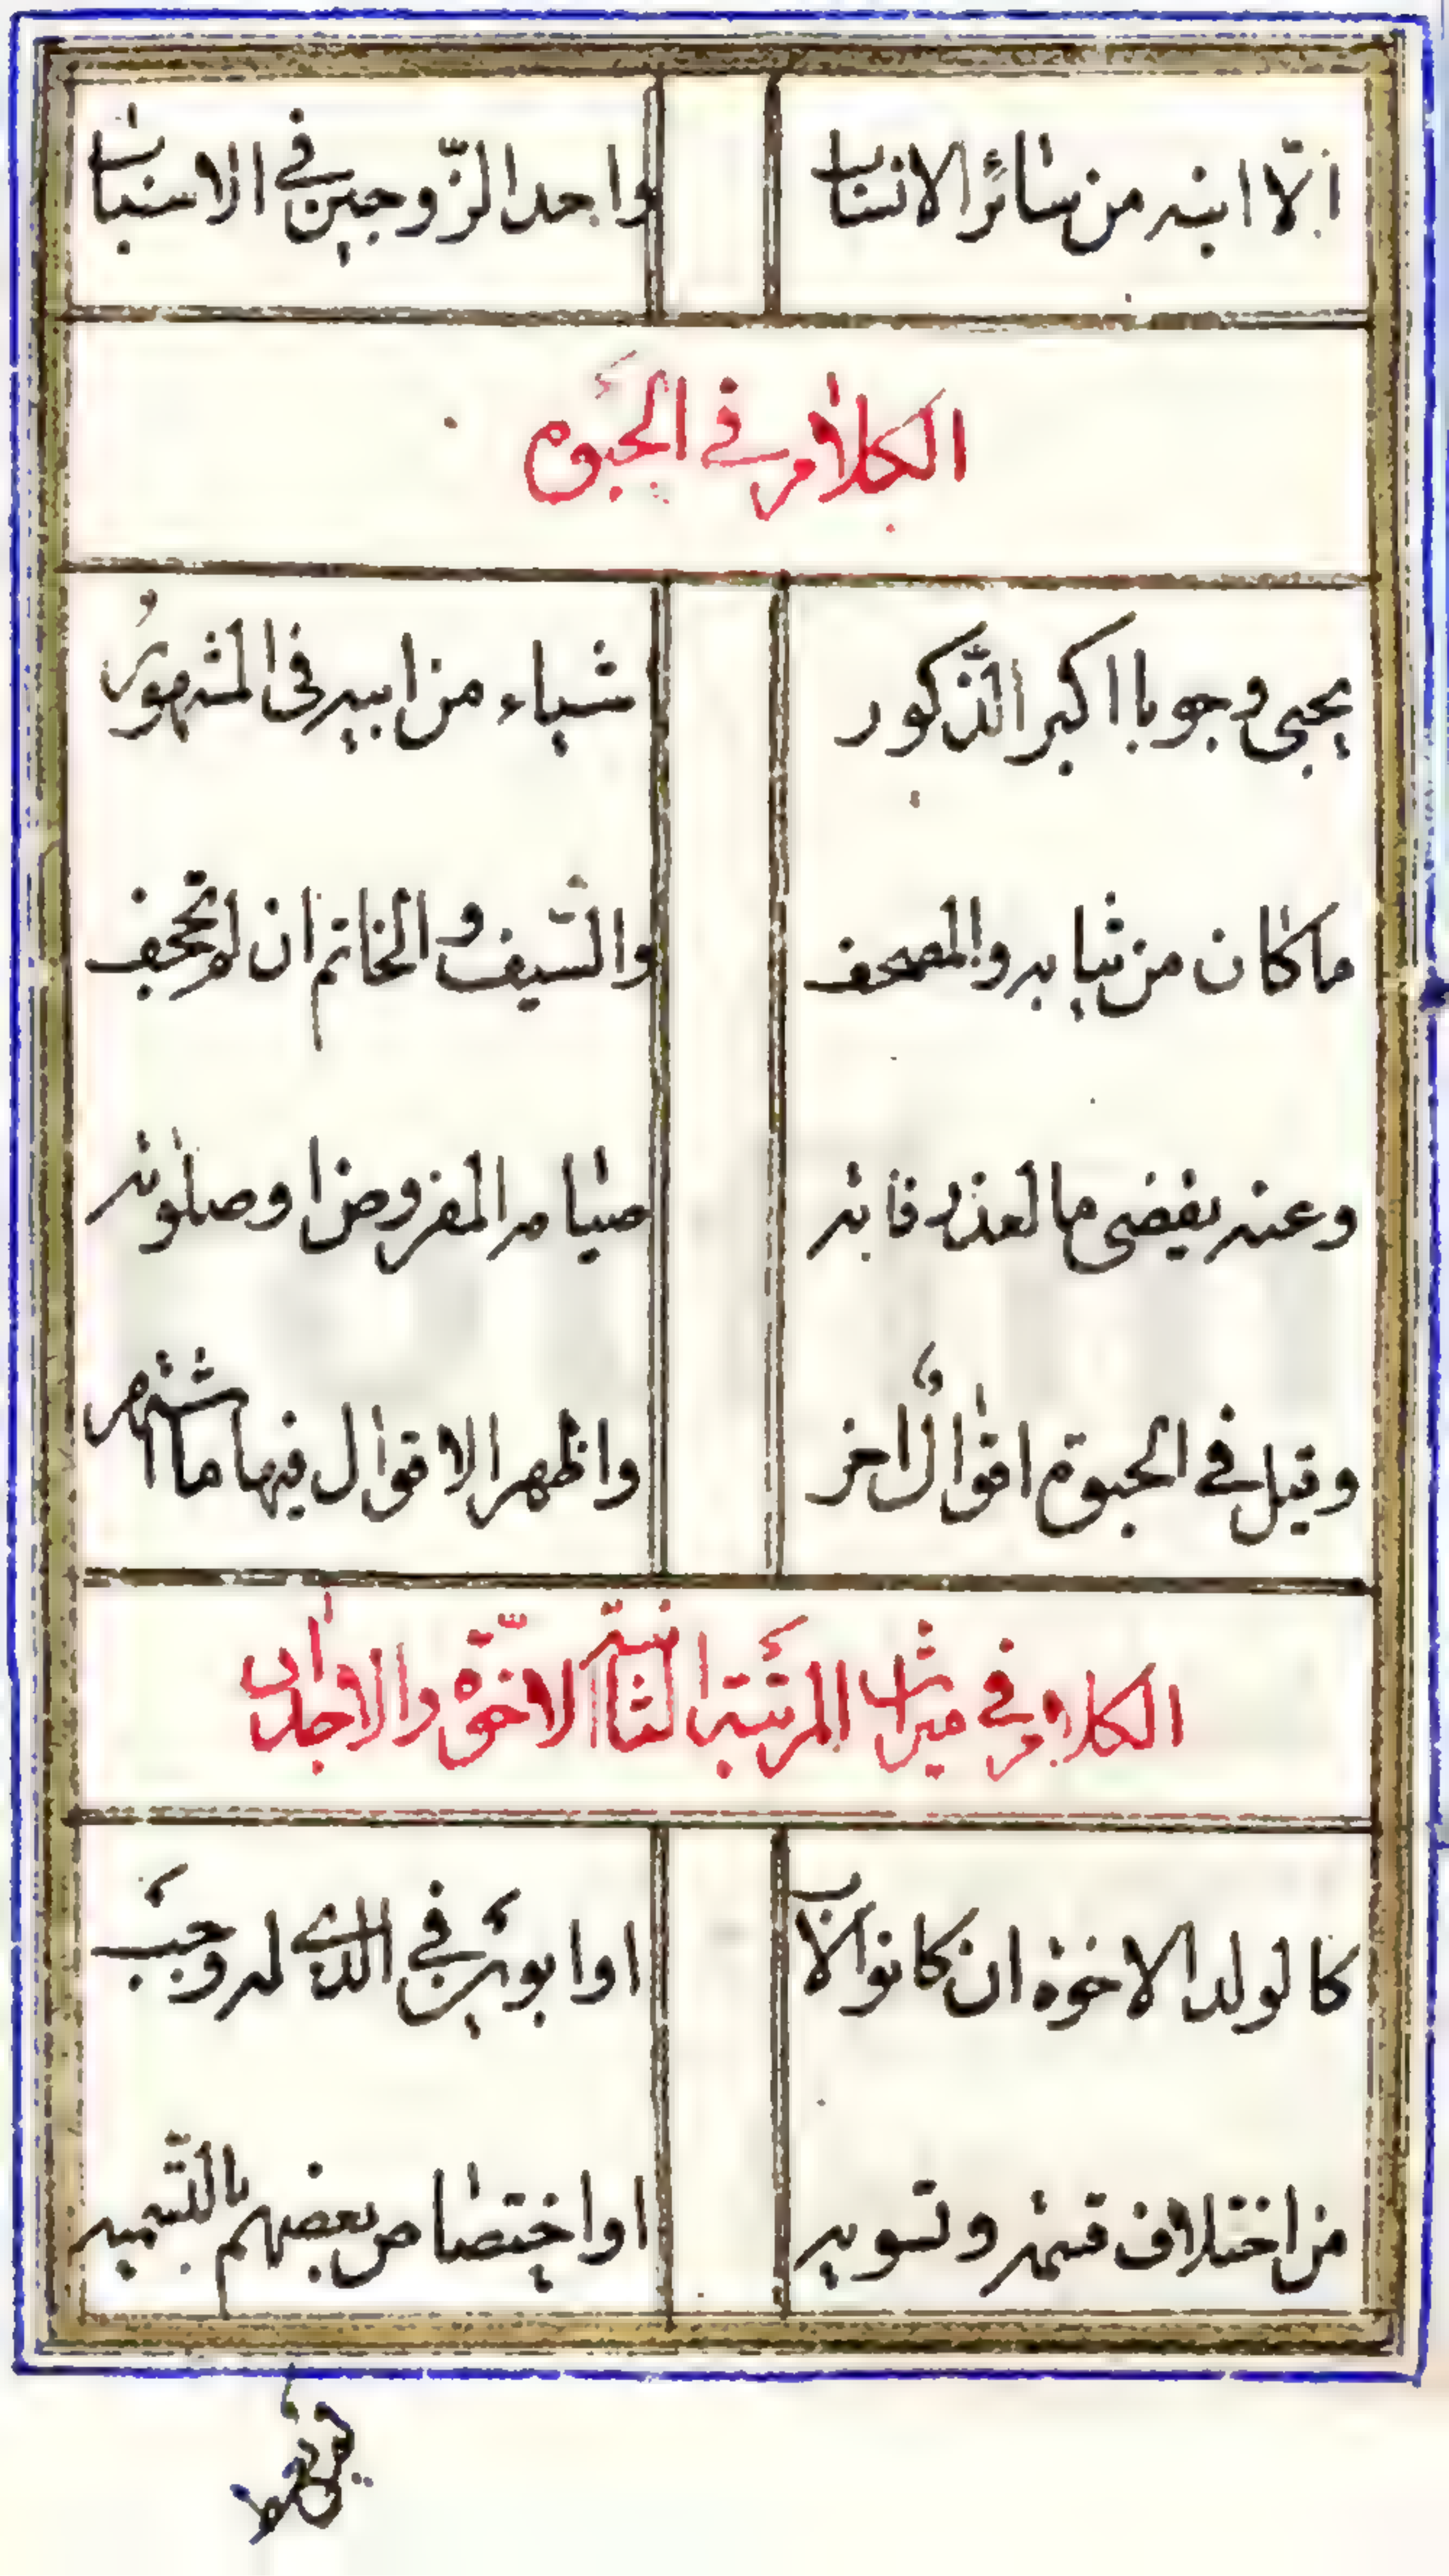 الّا ابنه من سائر الانساب واحد الزّوجين في الاسباب
الكلام في الحَبوة
يحبى وجوبا اكبر الذّكور اشياء من ابيه فى المشهورُ
ما كان من ثيابه والمصحف والسّيف والخاتم ان لم تجحف
وعنه يقضى ما لعذر فاته صيامه المفروض او صلوته
وقيل في الحبوة اقوالٌ اخر واظهر الاقوال فيها ما اشتهر
الكلام في ميراث المرتَبة الثّانية الاخوّة والاجداد
كالولد الاخوة ان كانوا لاب او ابويَن في الّذي له وجَب
من اختلاف قسمة وتسويه او اختصاص بعضهم بالتّسميه